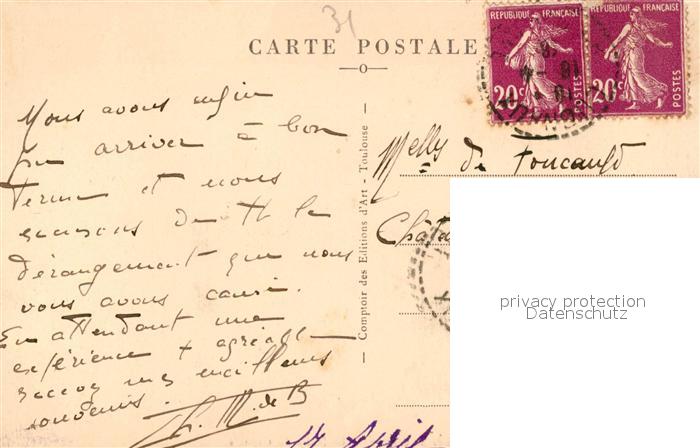 31
CARTE POSTALE
REPUBLIQUE FRANÇAISE
20c POSTES
REPUBLIQUE FRANÇAISE
20c POSTES
Nous avons enfin
pu arriver à bon
terme et nous
excusons du
dérangement que nous
vous avons causé.
En attendant une
expérience + agréable
recevez mes meilleurs
souvenirs.
Ch. M. de B
17 April
Comptoir des Editions d'Art - Toulouse
Melly de Foucauld
Chate
privacy protection
Datenschutz